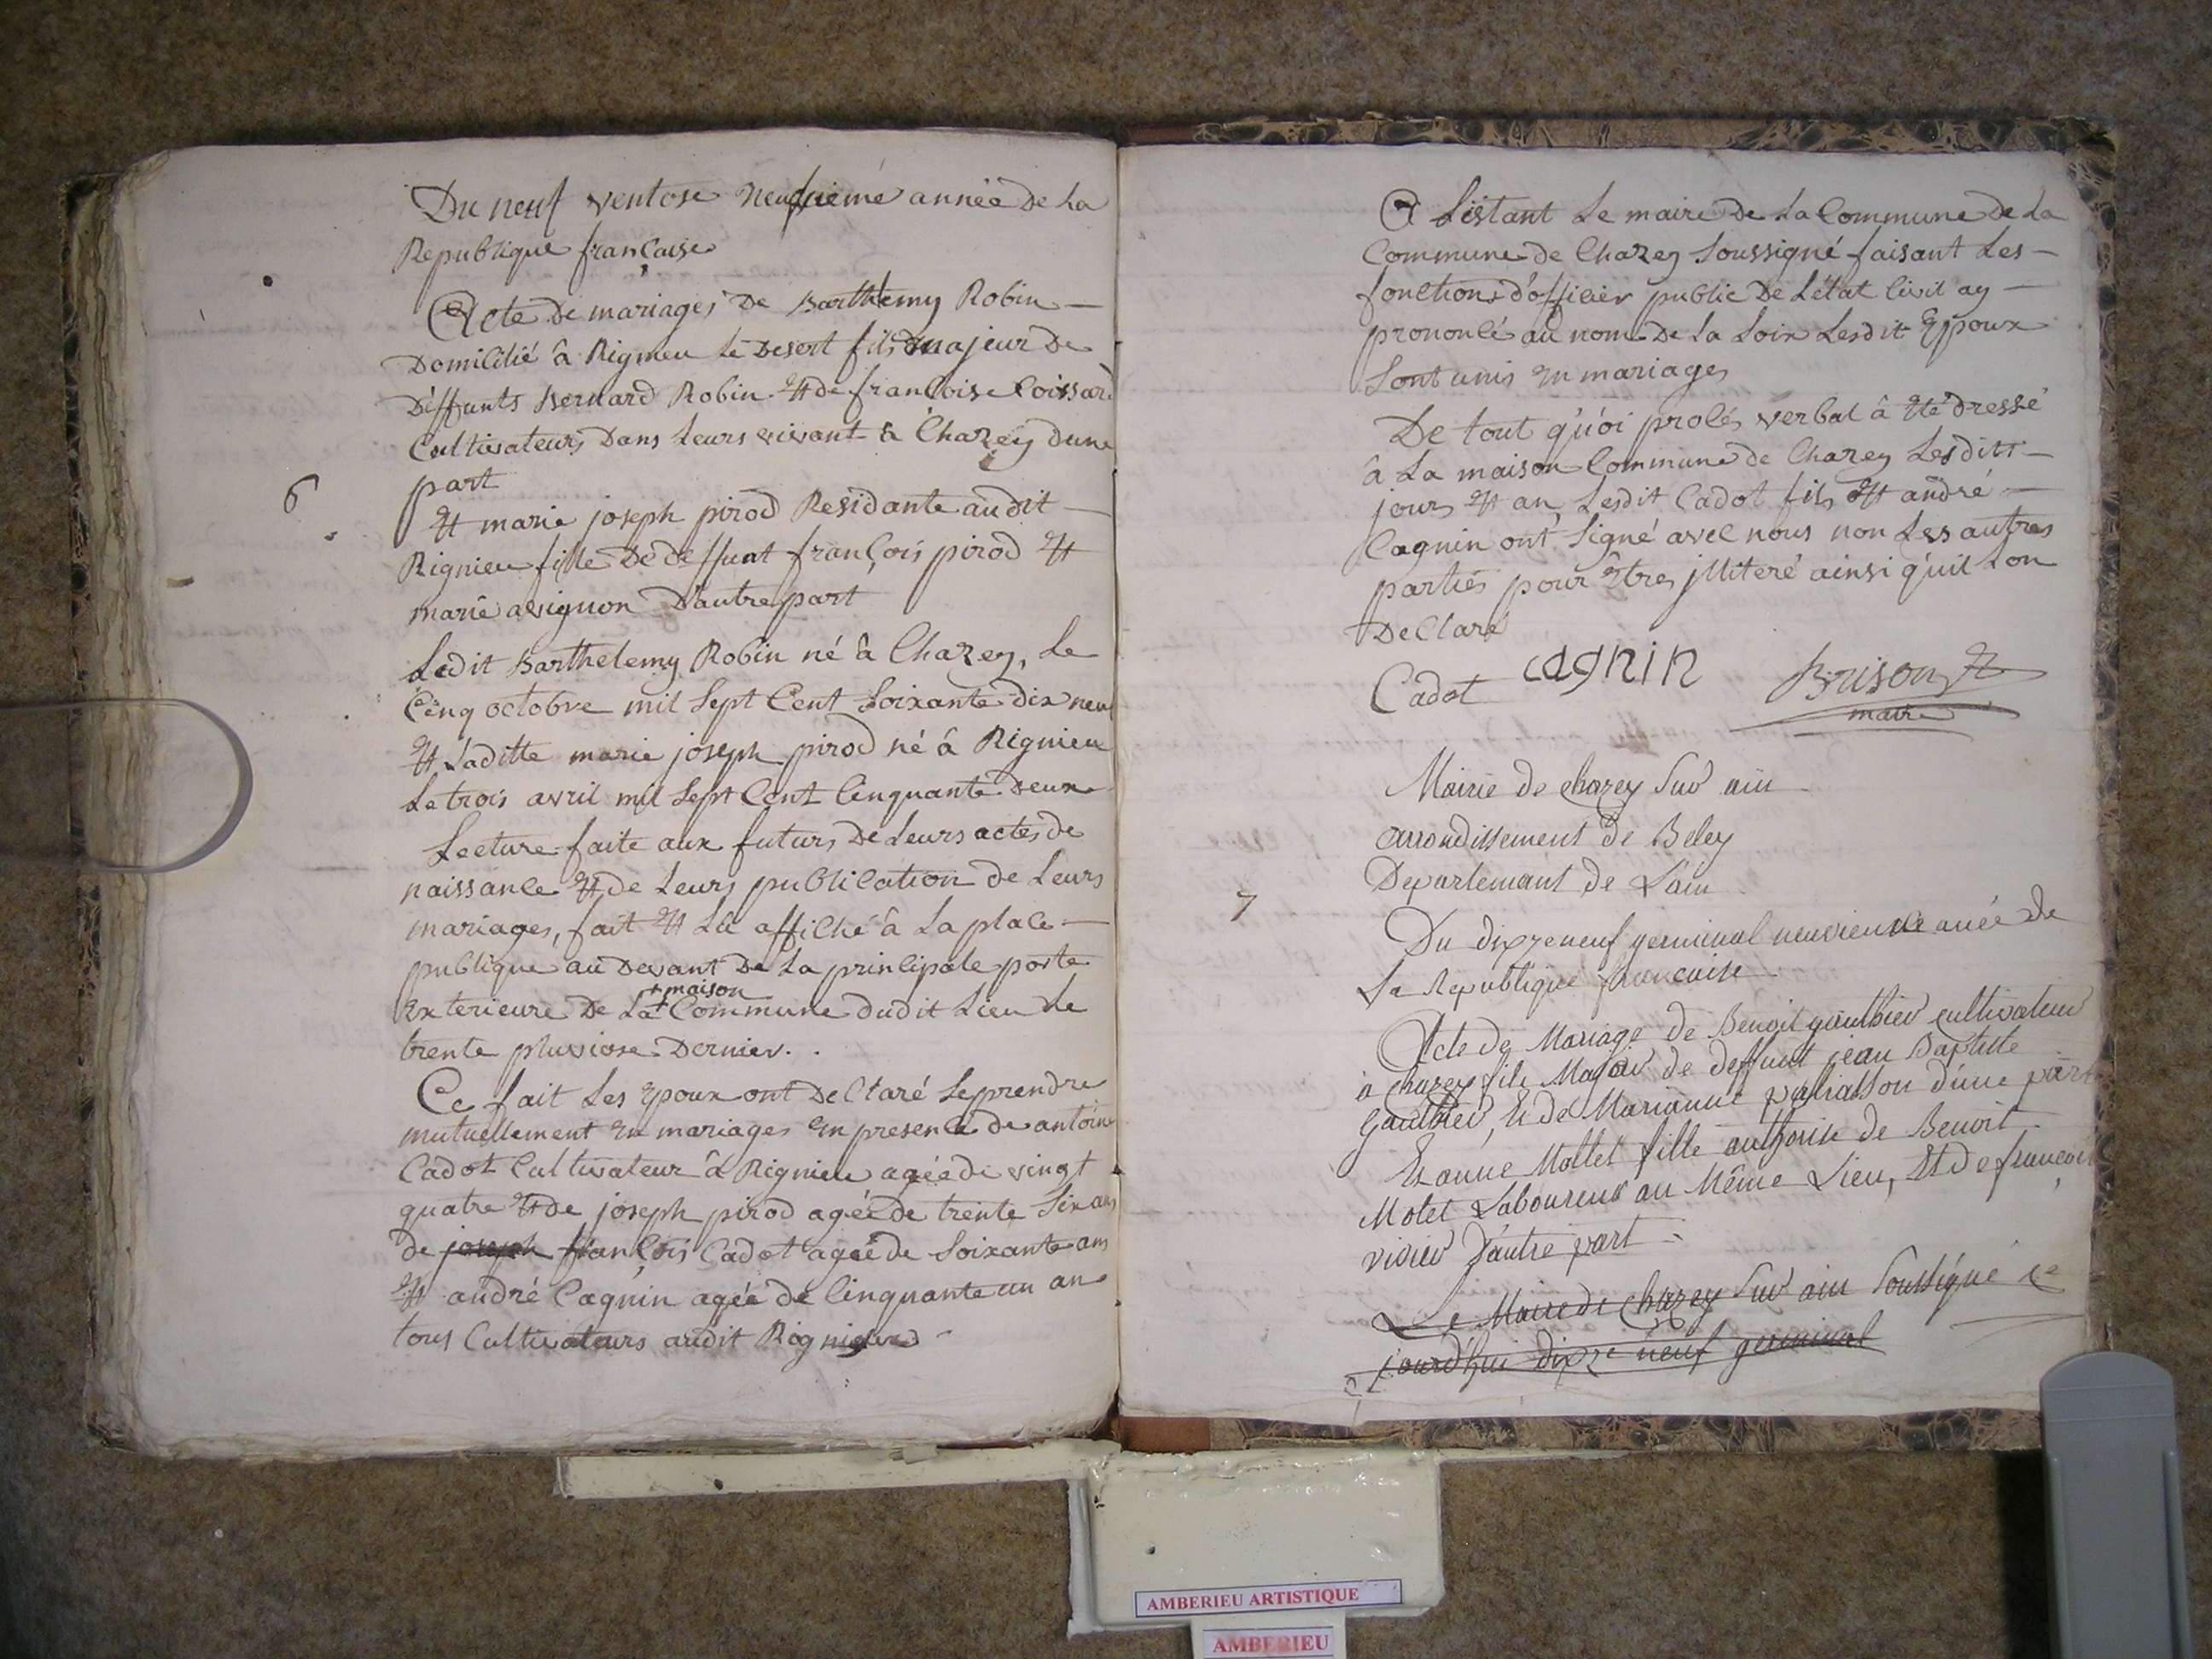 Du neuf ventose neufvieme année De La
Republique françaises
Acte De mariages De Barthlemy Robin —
Domicilié â Rignieu Le Desert fils majeur De
Deffunts Bernard Robin et de francoise Coissard
Cultivateurs Dans Leurs vivant â Chazey dune
part
6
et marie joseph pirod Residante audit —
Rignieu fille De deffunt françois pirod et
marie avignon D'autre part
Ledit Barthelemy Robin né â Chazey, Le
Cinq octobre mil Sept Cent Soixante dix neuf
et Laditte marie joseph pirod né â Rignieu
Le trois avril mil Sept Cent Cinquante Deux
Lecture faite aux futurs De Leurs actes de
naissance et de Leurs publication de Leurs
mariages, fait et Lû affiché â La place —
publique au Devant De La principale porte
Exterieure De La + maison Commune dudit Lieu Le
trente pluviose Dernier..
Ce fait Les Epoux ont DeClaré Se prendre
mutuellement En mariages En presence de antoine
Cadot Cultivateur â Rignieu agée de vingt
quatre et de joseph pirod agée de trente Six ans
de joseph françois Cadot agée de Soixante ans
et andré Cagnin agée de Cinquante un an
tous Cultivateurs audit Rignieux
A Listant Le maire De La Commune De La
Commune de Chazey Soussigné faisant Les —
fonctions d'officier public De L'etat Civil ay —
prononcé au nom De La Loix Lesdit Epoux
Sont unis En mariages
De tout qu'oi procés verbal â Eté dressé
â La maison Commune de Chazey Lesditt —
jours et an, Lesdit Cadot fils et andré —
Cagnin ont Signé avec nous non Les autres
parties pour Etres jlliteré ainsi qu'il Lon
DeClaré
Cadot cagnin Brison
maire
Mairie de chazey Sur ain
arrondissement de Beley
Departemant de Lain
7
Du dixzeneuf germinal neuvieme anée de
La Republique francaise
Acte de Mariage de Benoit gauthier cultivateur
à Chazey fils Majour de deffunt jean Baptiste
Gauthier, Et de Marianne paliasson d'une part
Et anne Mollet fille authorise de Benoit
Molet Laboureur au Même Lieu, Et de francoise
vivier D'autre part
Le Maire de Chazey Sur ain Soussigné ce
jourd'hui dixze neuf germinal
AMBERIEU ARTISTIQUE
AMBERIEU